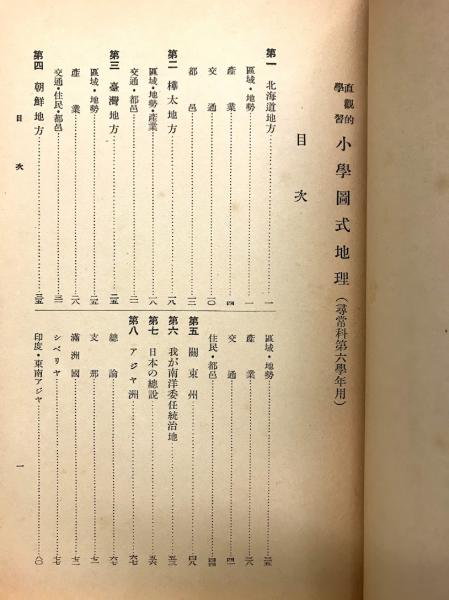 直觀的
學習
小學圖式地理(尋常科第六學年用)
目次
第一 北海道地方……一
區域・地勢……一
產業……四
交通……一〇
都邑……一二
第二 樺太地方……一八
區域・地勢・產業……一八
交通・都邑……二二
第三 臺灣地方……二五
區域・地勢……二五
產業……二八
交通・住民・都邑……三二
第四 朝鮮地方……三五
區域・地勢……三五
產業……三六
交通……四一
住民・都邑……四四
第五 關東州……四八
第六 我が南洋委任統治地……五三
第七 日本の總說……五六
第八 アジヤ洲……六七
總論……六七
支那……七二
滿洲國……七三
シベリヤ……七七
印度・東南アジヤ……八〇
目次
一